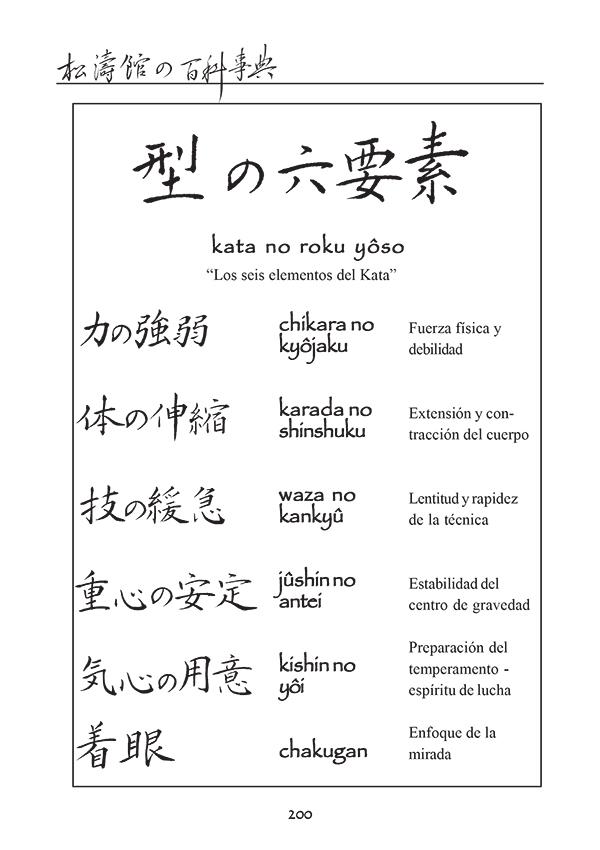 松濤館の百科事典
型の六要素
kata no roku yôso
“Los seis elementos del Kata”
力の強弱
chikara no
kyôjaku
Fuerza física y
debilidad
体の伸縮
karada no
shinshuku
Extensión y con-
tracción del cuerpo
技の緩急
waza no
kankyû
Lentitud y rapidez
de la técnica
重心の安定
jûshin no
antei
Estabilidad del
centro de gravedad
気心の用意
kishin no
yôi
Preparación del
temperamento -
espíritu de lucha
着眼
chakugan
Enfoque de la
mirada
200